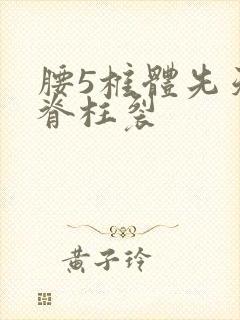 腰5椎體先天
脊柱裂
黃子玲